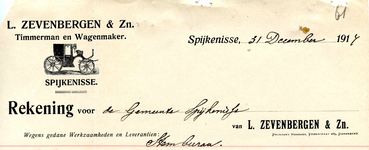 61
L. ZEVENBERGEN & Zn.
Timmerman en Wagenmaker.
Spijkenisse, 31 December 1917
SPIJKENISSE.
Rekening voor de Gemeente Spijkenisse
van L. ZEVENBERGEN & Zn.
Wegens gedane Werkzaamheden en Leverantien: